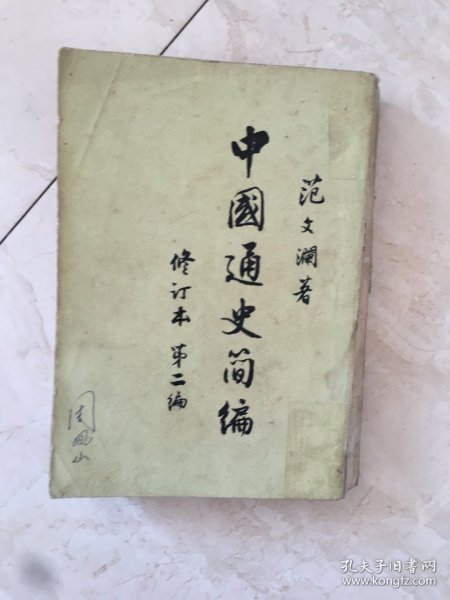 范文瀾著
中國通史简編
修订本 第二编
周凤山
孔夫子旧书网
www.kongfz.com